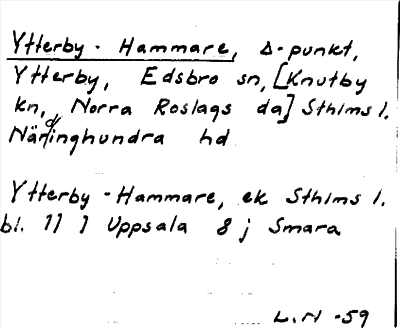 Ytterby - Hammare, Δ-punkt,
Ytterby, Edsbro sn, [Knutby
kn, Norra Roslags da] Sthlms l.
Närdinghundra hd
Ytterby - Hammare, ek Sthlms l.
bl. 11 I Uppsala 8 j Smara
L.N -59